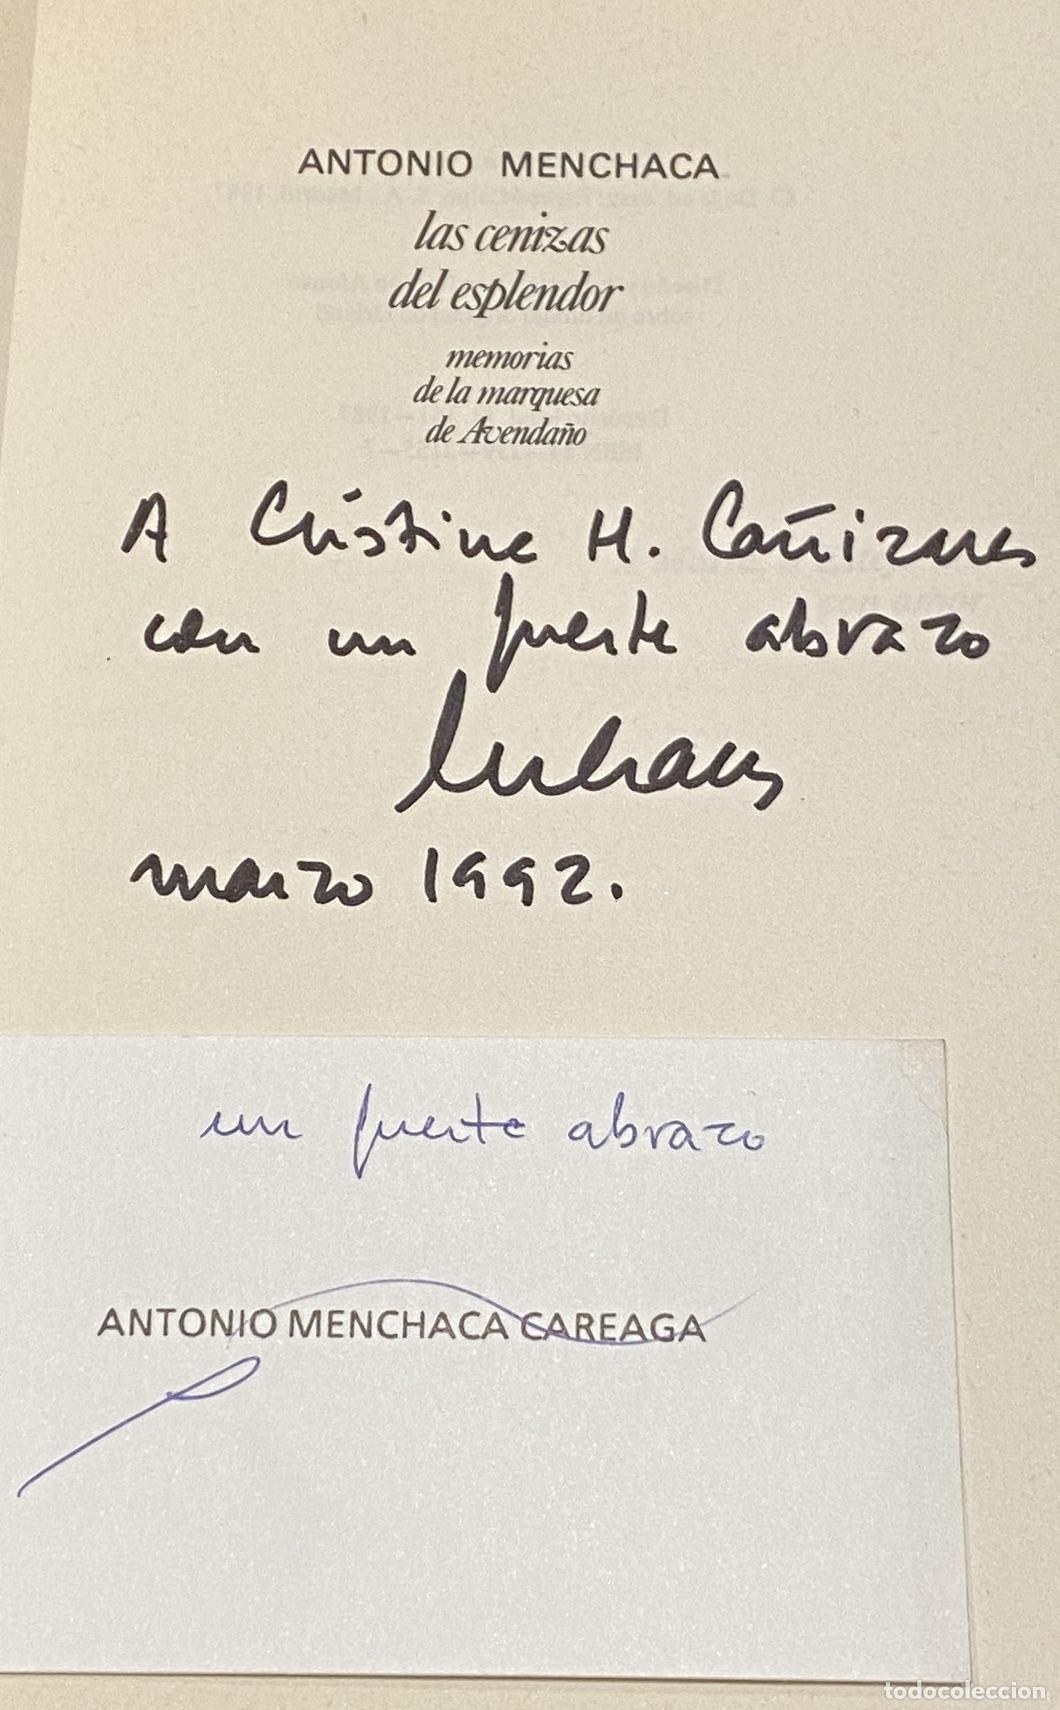 ANTONIO MENCHACA
las cenizas
del esplendor
memorias
de la marquesa
de Avendaño
A Cristina H. Cañizares
con un fuerte abrazo
Menchaca
marzo 1992.
un fuerte abrazo
ANTONIO MENCHACA CAREAGA
todocoleccion